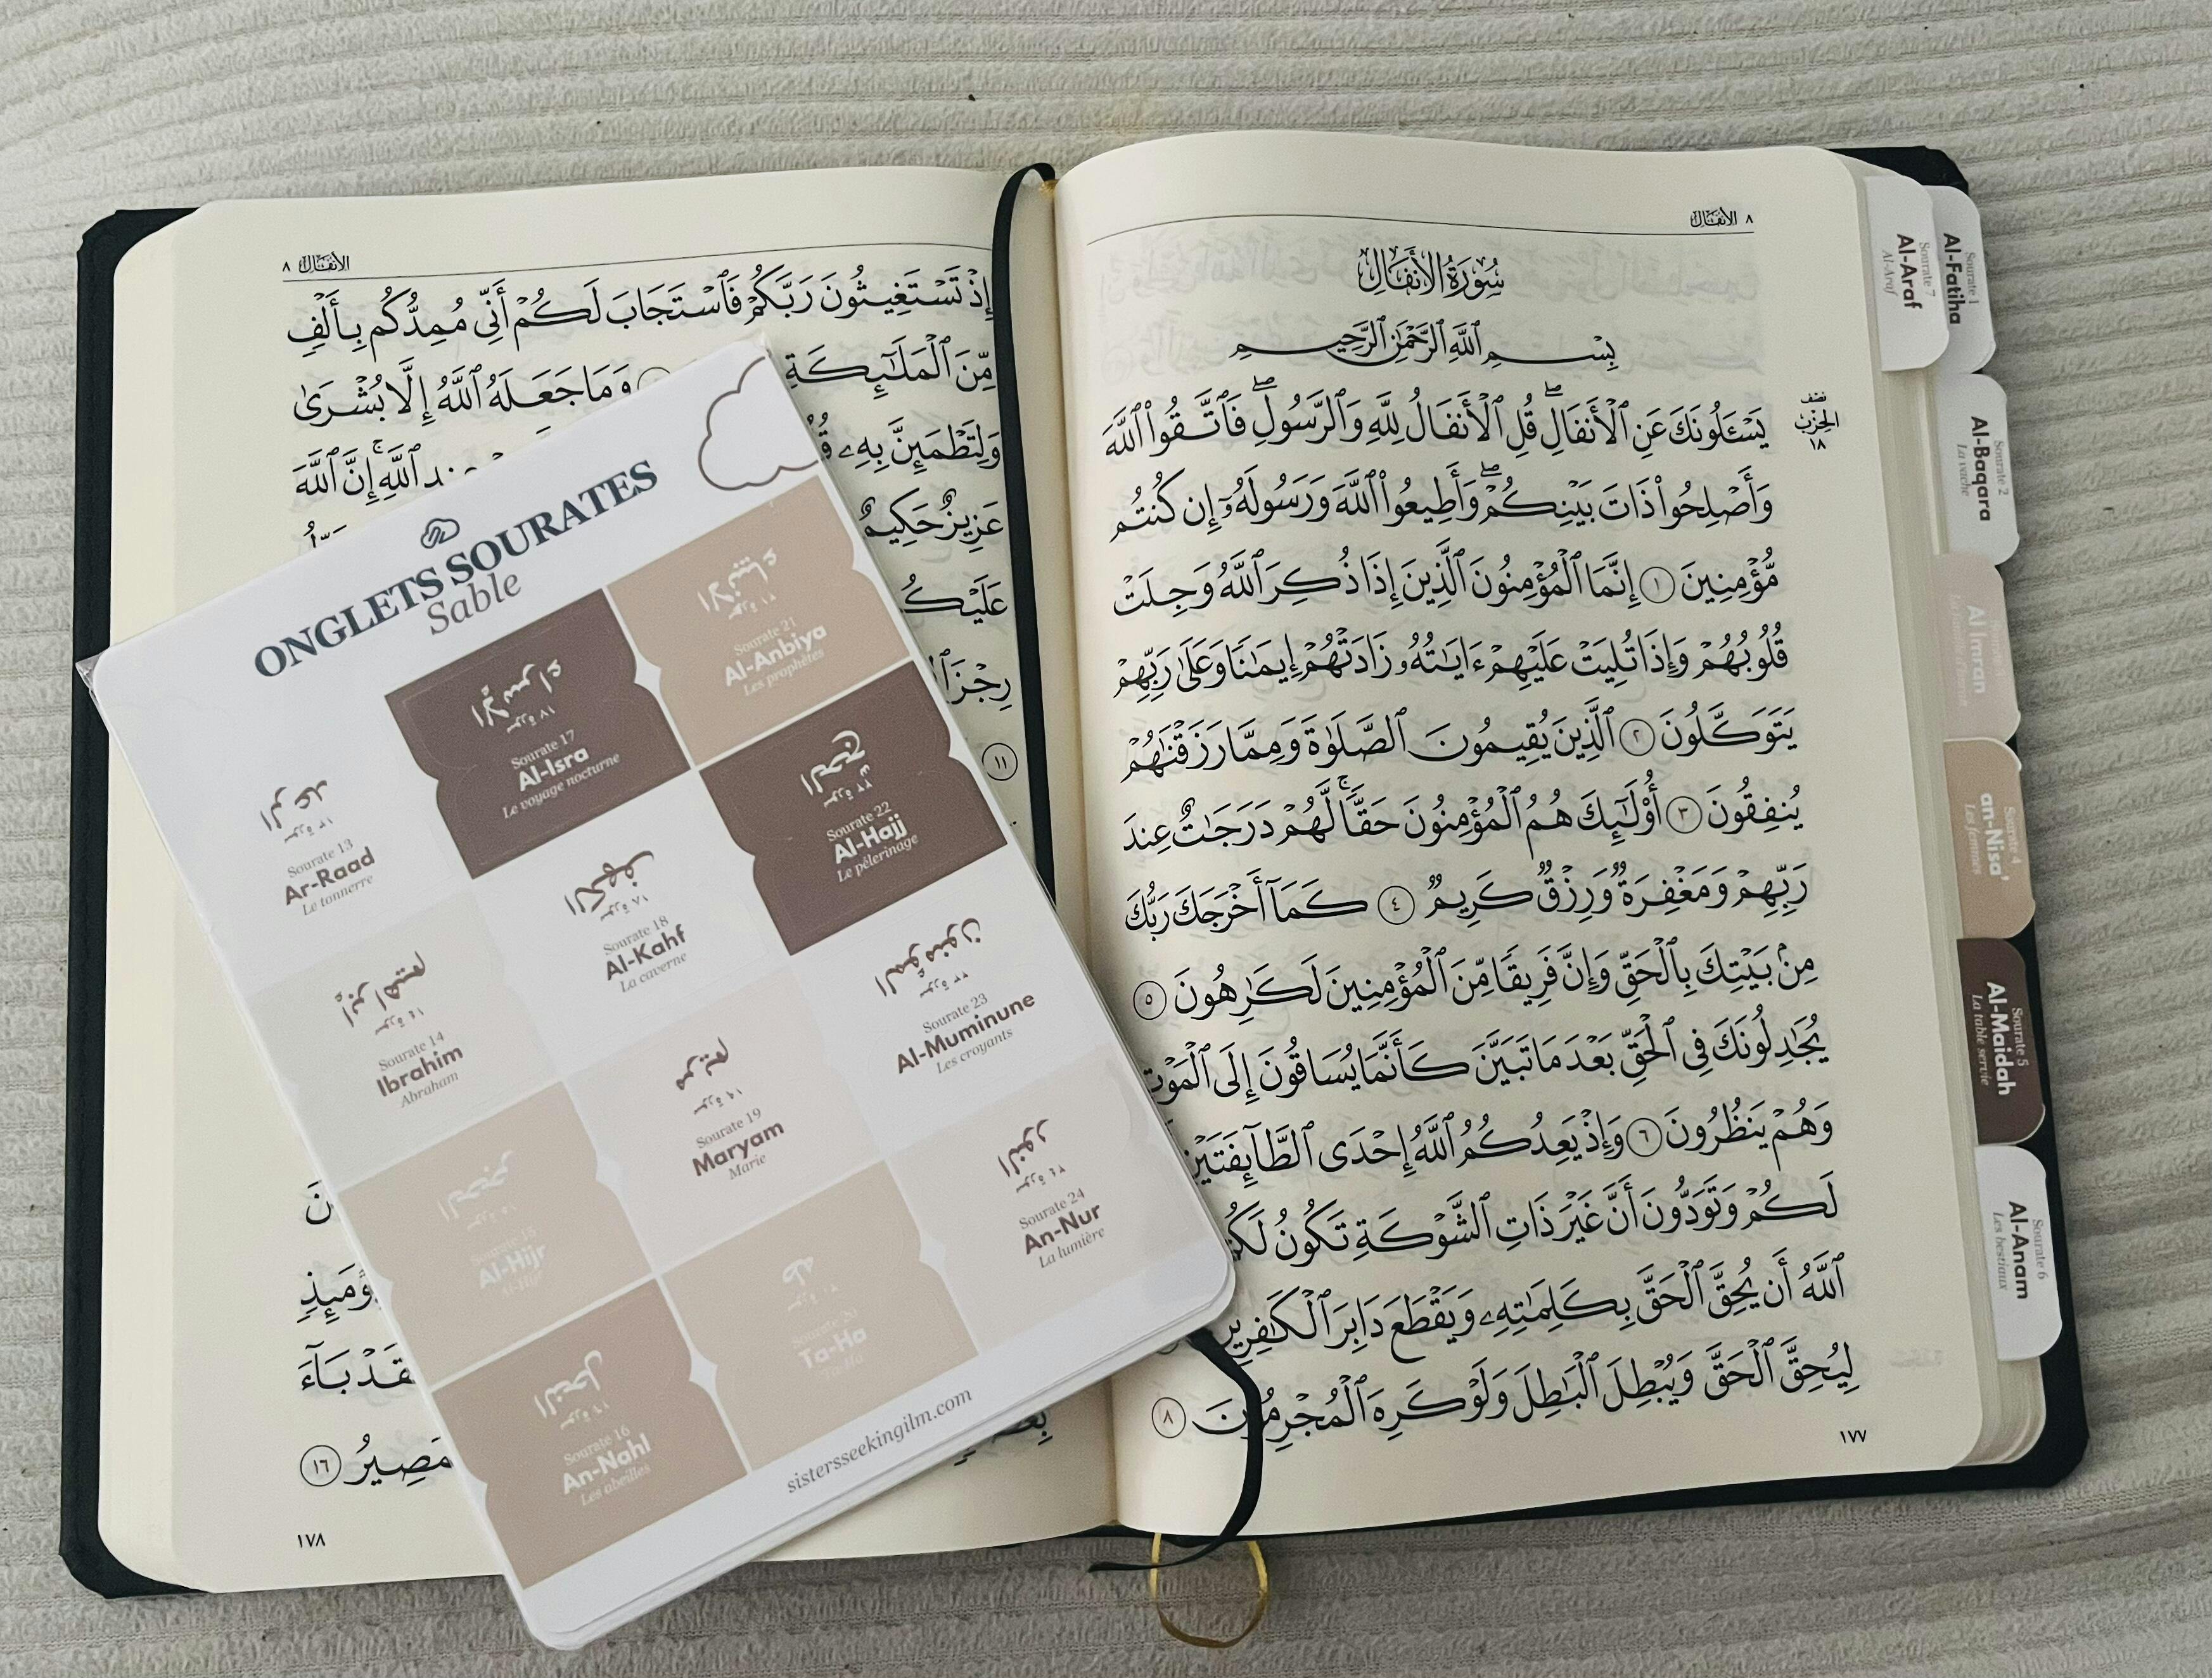 ٨ الأنفال
سُورَةُ الأَنفَالِ
بِسْمِ ٱللَّهِ ٱلرَّحْمَٰنِ ٱلرَّحِيمِ
يَسْـَٔلُونَكَ عَنِ ٱلْأَنفَالِۖ قُلِ ٱلْأَنفَالُ لِلَّهِ وَٱلرَّسُولِۖ فَٱتَّقُوا۟ ٱللَّهَ
وَأَصْلِحُوا۟ ذَاتَ بَيْنِكُمْۖ وَأَطِيعُوا۟ ٱللَّهَ وَرَسُولَهُۥٓ إِن كُنتُم
مُّؤْمِنِينَ ١ إِنَّمَا ٱلْمُؤْمِنُونَ ٱلَّذِينَ إِذَا ذُكِرَ ٱللَّهُ وَجِلَتْ
قُلُوبُهُمْ وَإِذَا تُلِيَتْ عَلَيْهِمْ ءَايَٰتُهُۥ زَادَتْهُمْ إِيمَٰنًا وَعَلَىٰ رَبِّهِمْ
يَتَوَكَّلُونَ ٢ ٱلَّذِينَ يُقِيمُونَ ٱلصَّلَوٰةَ وَمِمَّا رَزَقْنَٰهُمْ
يُنفِقُونَ ٣ أُو۟لَٰٓئِكَ هُمُ ٱلْمُؤْمِنُونَ حَقًّاۚ لَّهُمْ دَرَجَٰتٌ عِندَ
رَبِّهِمْ وَمَغْفِرَةٌ وَرِزْقٌ كَرِيمٌ ٤ كَمَآ أَخْرَجَكَ رَبُّكَ
مِنۢ بَيْتِكَ بِٱلْحَقِّ وَإِنَّ فَرِيقًا مِّنَ ٱلْمُؤْمِنِينَ لَكَٰرِهُونَ ٥
يُجَٰدِلُونَكَ فِى ٱلْحَقِّ بَعْدَ مَا تَبَيَّنَ كَأَنَّمَا يُسَاقُونَ إِلَى ٱلْمَوْتِ
وَهُمْ يَنظُرُونَ ٦ وَإِذْ يَعِدُكُمُ ٱللَّهُ إِحْدَى ٱلطَّآئِفَتَيْنِ
لَكُمْ وَتَوَدُّونَ أَنَّ غَيْرَ ذَاتِ ٱلشَّوْكَةِ تَكُونُ لَكُمْ
ٱللَّهُ أَن يُحِقَّ ٱلْحَقَّ بِكَلِمَٰتِهِۦ وَيَقْطَعَ دَابِرَ ٱلْكَٰفِرِينَ
لِيُحِقَّ ٱلْحَقَّ وَيُبْطِلَ ٱلْبَٰطِلَ وَلَوْ كَرِهَ ٱلْمُجْرِمُونَ ٨
١٧٧
نصف
الحزب
١٨
الأنفال ٨
إِذْ تَسْتَغِيثُونَ رَبَّكُمْ فَٱسْتَجَابَ لَكُمْ أَنِّى مُمِدُّكُم بِأَلْفٍ
مِّنَ ٱلْمَلَٰٓئِكَةِ وَمَا جَعَلَهُ ٱللَّهُ إِلَّا بُشْرَىٰ
وَلِتَطْمَئِنَّ بِهِۦ عِندِ ٱللَّهِۚ إِنَّ ٱللَّهَ
عَزِيزٌ حَكِيمٌ
١١
قَدْ بَآءَ
١٦
١٧٨
ONGLETS SOURATES
Sable
الرعد
سورة ١٣
Sourate 13
Ar-Raad
Le tonerre
إبراهيم
سورة ١٤
Sourate 14
Ibrahim
Abraham
الحجر
سورة ١٥
Sourate 15
Al-Hijr
النحل
Sourate 16
An-Nahl
Les abeilles
الإسراء
سورة ١٧
Sourate 17
Al-Isra
Le voyage nocturne
الكهف
سورة ١٨
Sourate 18
Al-Kahf
La caverne
مريم
سورة ١٩
Sourate 19
Maryam
Marie
طه
Sourate 20
Ta-Ha
الأنبياء
سورة ٢١
Sourate 21
Al-Anbiya
Les prophètes
الحج
سورة ٢٢
Sourate 22
Al-Hajj
Le pélerinage
المؤمنون
سورة ٢٣
Sourate 23
Al-Muminune
Les croyants
النور
سورة ٢٤
Sourate 24
An-Nur
La lumière
sistersseekingilm.com
Sourate 1
Al-Fatiha
Sourate 7
Al-Araf
Al-Araf
Sourate 2
Al-Baqara
La vache
Al Imran
Sourate 4
an-Nisa'
Les femmes
Sourate 5
Al-Maidah
La table servie
Sourate 6
Al-Anam
Les bestiaux